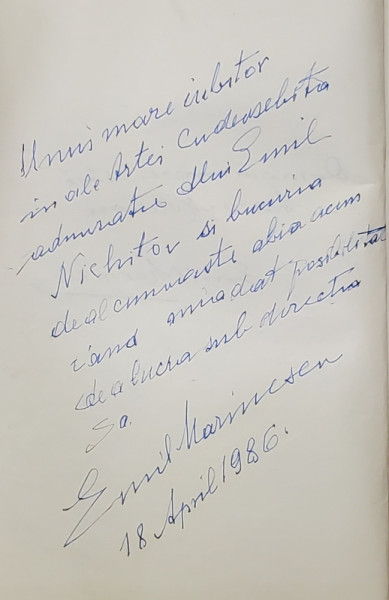 Unui mare iubitor
in ale Artei Cu deosebita
admiratie dlui Emil
Nichitov si bucuria
de al cunoaste abia acum
cand mi a dat posibilitat
de a lucra sub directia
Sa.
Emil Marinescu
18 April 1986.